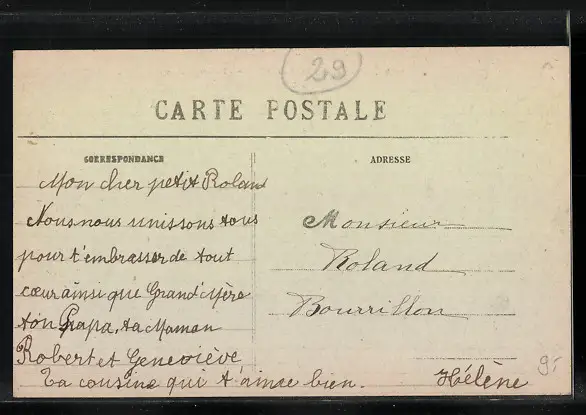 29
CARTE POSTALE
CORRESPONDANCE
ADRESSE
Mon cher petit Roland
Nous nous unissons tous
pour t'embrasser de tout
cœur ainsi que Grand'Mère
ton Papa, ta Maman
Robert et Geneviève
Ta cousine qui t'aime bien.
Hélène
Monsieur
Roland
Bourrillon
9-